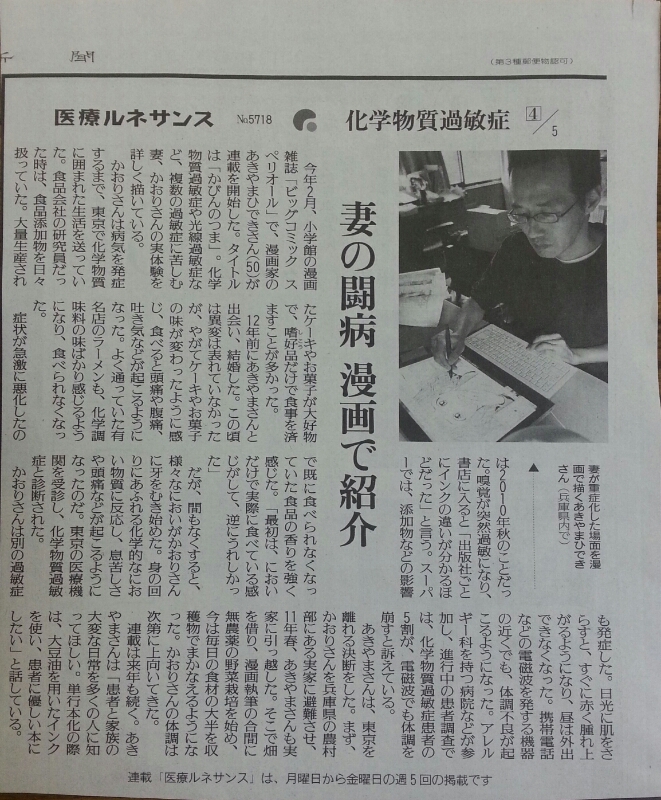 聞
(第3種郵便物認可)
医療ルネサンス
No.5718
化学物質過敏症
4/5
妻の闘病 漫画で紹介
今年2月、小学館の漫画
雑誌「ビッグコミック ス
ペリオール」で、漫画家の
あきやまひできさん(50)が
連載を開始した。タイトル
は「かびんのつま」。化学
物質過敏症や光線過敏症な
ど、複数の過敏症に苦しむ
妻、かおりさんの実体験を
詳しく描いている。
かおりさんは病気を発症
するまで、東京で化学物質
に囲まれた生活を送ってい
た。食品会社の研究員だっ
た時は、食品添加物を日々
扱っていた。大量生産され
たケーキやお菓子が大好物
で、嗜好品だけで食事を済
ますことが多かった。
12年前にあきやまさんと
出会い、結婚した。この頃
は異変は表れていなかった
が、やがてケーキやお菓子
の味が変わったように感
じ、食べると頭痛や腹痛、
吐き気などが起こるように
なった。よく通っていた有
名店のラーメンも、化学調
味料の味ばかり感じるよう
になり、食べられなくなっ
た。
症状が急激に悪化したの
は2010年秋のことだっ
た。嗅覚が突然過敏になり、
書店に入ると「出版社ごと
にインクの違いが分かるほ
どだった」と言う。スーパ
ーでは、添加物などの影響
で既に食べられなくなっ
ていた食品の香りを強く
感じた。「最初は、におい
だけで実際に食べている感
じがして、逆にうれしかっ
た」
だが、間もなくすると、
様々なにおいがかおりさん
に牙をむき始めた。身の回
りにあふれる化学的なにお
い物質に反応し、息苦しさ
や頭痛などが起こるように
なったのだ。東京の医療機
関を受診し、化学物質過敏
症と診断された。
かおりさんは別の過敏症
も発症した。日光に肌をさ
らすと、すぐに赤く腫れ上
がるようになり、昼は外出
できなくなった。携帯電話
などの電磁波を発する機器
の近くでも、体調不良が起
こるようになった。アレル
ギー科を持つ病院などが参
加し、進行中の患者調査で
は、化学物質過敏症患者の
5割が、電磁波でも体調を
崩すと訴えている。
あきやまさんは、東京を
離れる決断をした。まず、
かおりさんを兵庫県の農村
部にある実家に避難させ、
11年春、あきやまさんも実
家に引っ越した。そこで畑
を借り、漫画執筆の合間に
無農薬の野菜栽培を始め、
今は毎日の食材の大半を収
穫物でまかなえるようにな
った。かおりさんの体調は
次第に上向いてきた。
連載は来年も続く。あき
やまさんは「患者と家族の
大変な日常を多くの人に知
ってほしい。単行本化の際
は、大豆油を用いたインク
を使い、患者に優しい本に
したい」と話している。
妻が重症化した場面を漫
画で描くあきやまひでき
さん(兵庫県内で)
連載「医療ルネサンス」は、月曜日から金曜日の週5回の掲載です